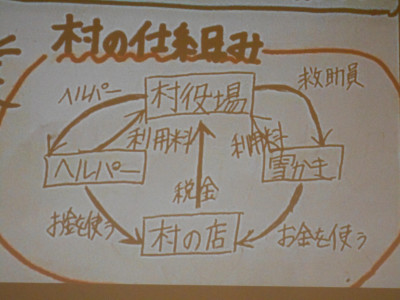 村の仕組み
ヘルパー
救助員
村役場
利用料
利用料
ヘルパー
雪かき
税金
お金を使う
村の店
お金を使う